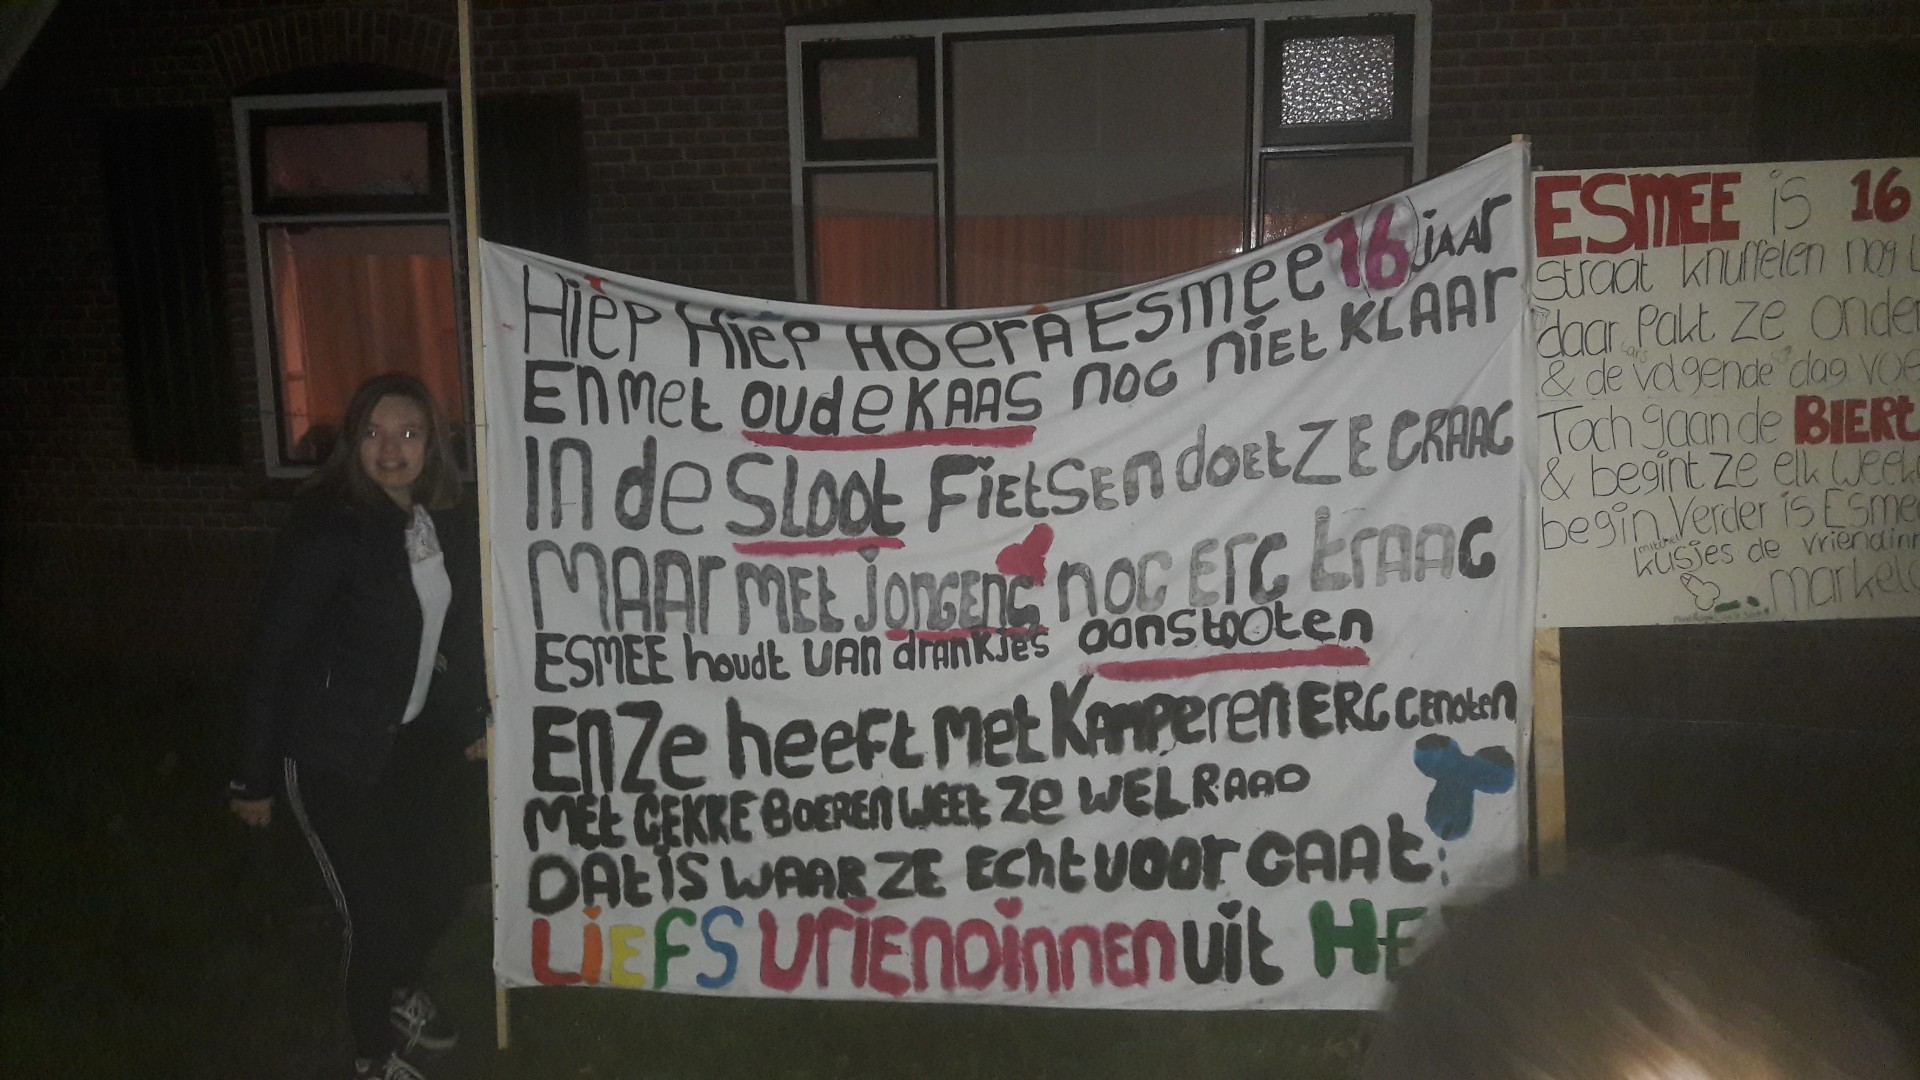 Hiep Hiep Hoera Esmee 16 jaar
En met oude kaas nog niet klaar
In de sloot fietsen doet ze graag
Maar met jongens nog erg traag
Esmee houdt van drankjes aanstooten
En ze heeft met kamperen erg genoten
Met gekke boeren weet ze wel raad
Dat is waar ze echt voor gaat:
Liefs vriendinnen uit HE
ESMEE is 16
straat knuffelen nog
daar pakt ze onder
& de volgende dag voe
Toch gaan de BIERt
& begint ze elk week
begin. Verder is Esmee
kusjes de vriendinn
markelo